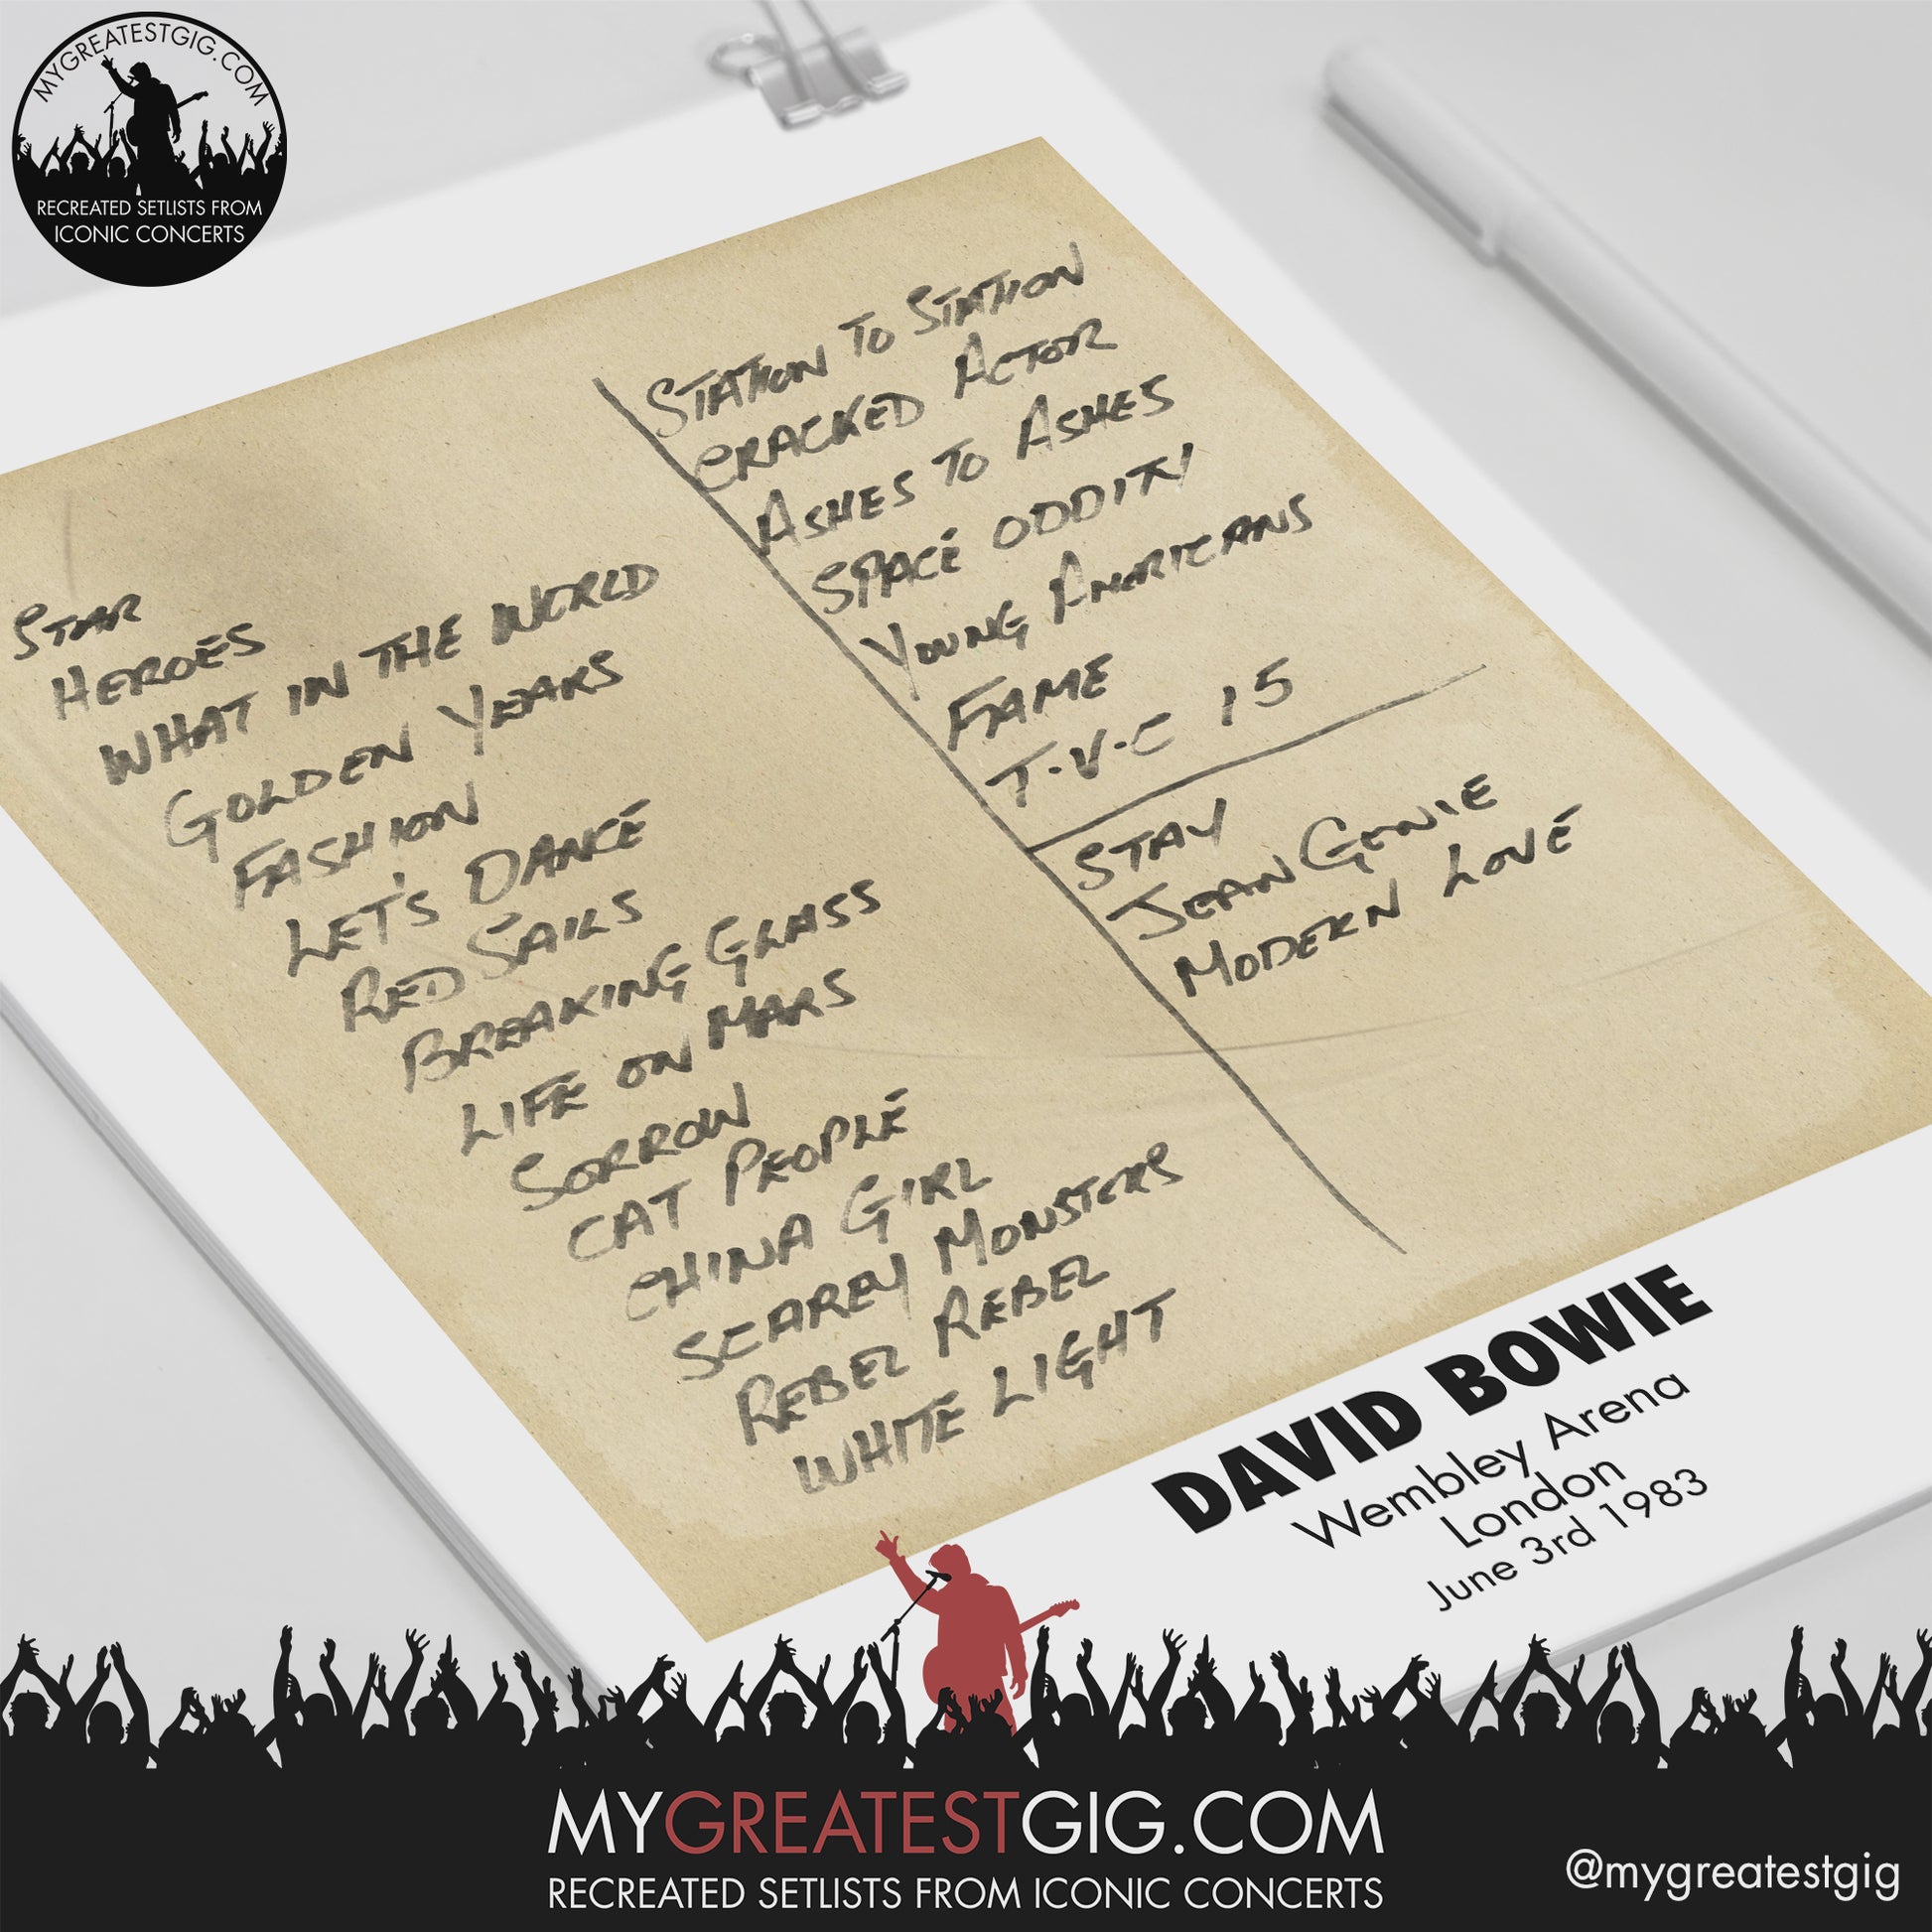 MYGREATESTGIG.COM
RECREATED SETLISTS FROM
ICONIC CONCERTS
STAR
HEROES
WHAT IN THE WORLD
GOLDEN YEARS
FASHION
LET'S DANCE
RED SAILS
BREAKING GLASS
LIFE ON MARS
SORROW
CAT PEOPLE
CHINA GIRL
SCAREY MONSTERS
REBEL REBEL
WHITE LIGHT
STATION TO STATION
CRACKED ACTOR
ASHES TO ASHES
SPACE ODDITY
YOUNG AMERICANS
FAME
T.V.C 15
STAY
JEAN GENIE
MODERN LOVE
DAVID BOWIE
Wembley Arena
London
June 3rd 1983
MYGREATESTGIG.COM
RECREATED SETLISTS FROM ICONIC CONCERTS
@mygreatestgig